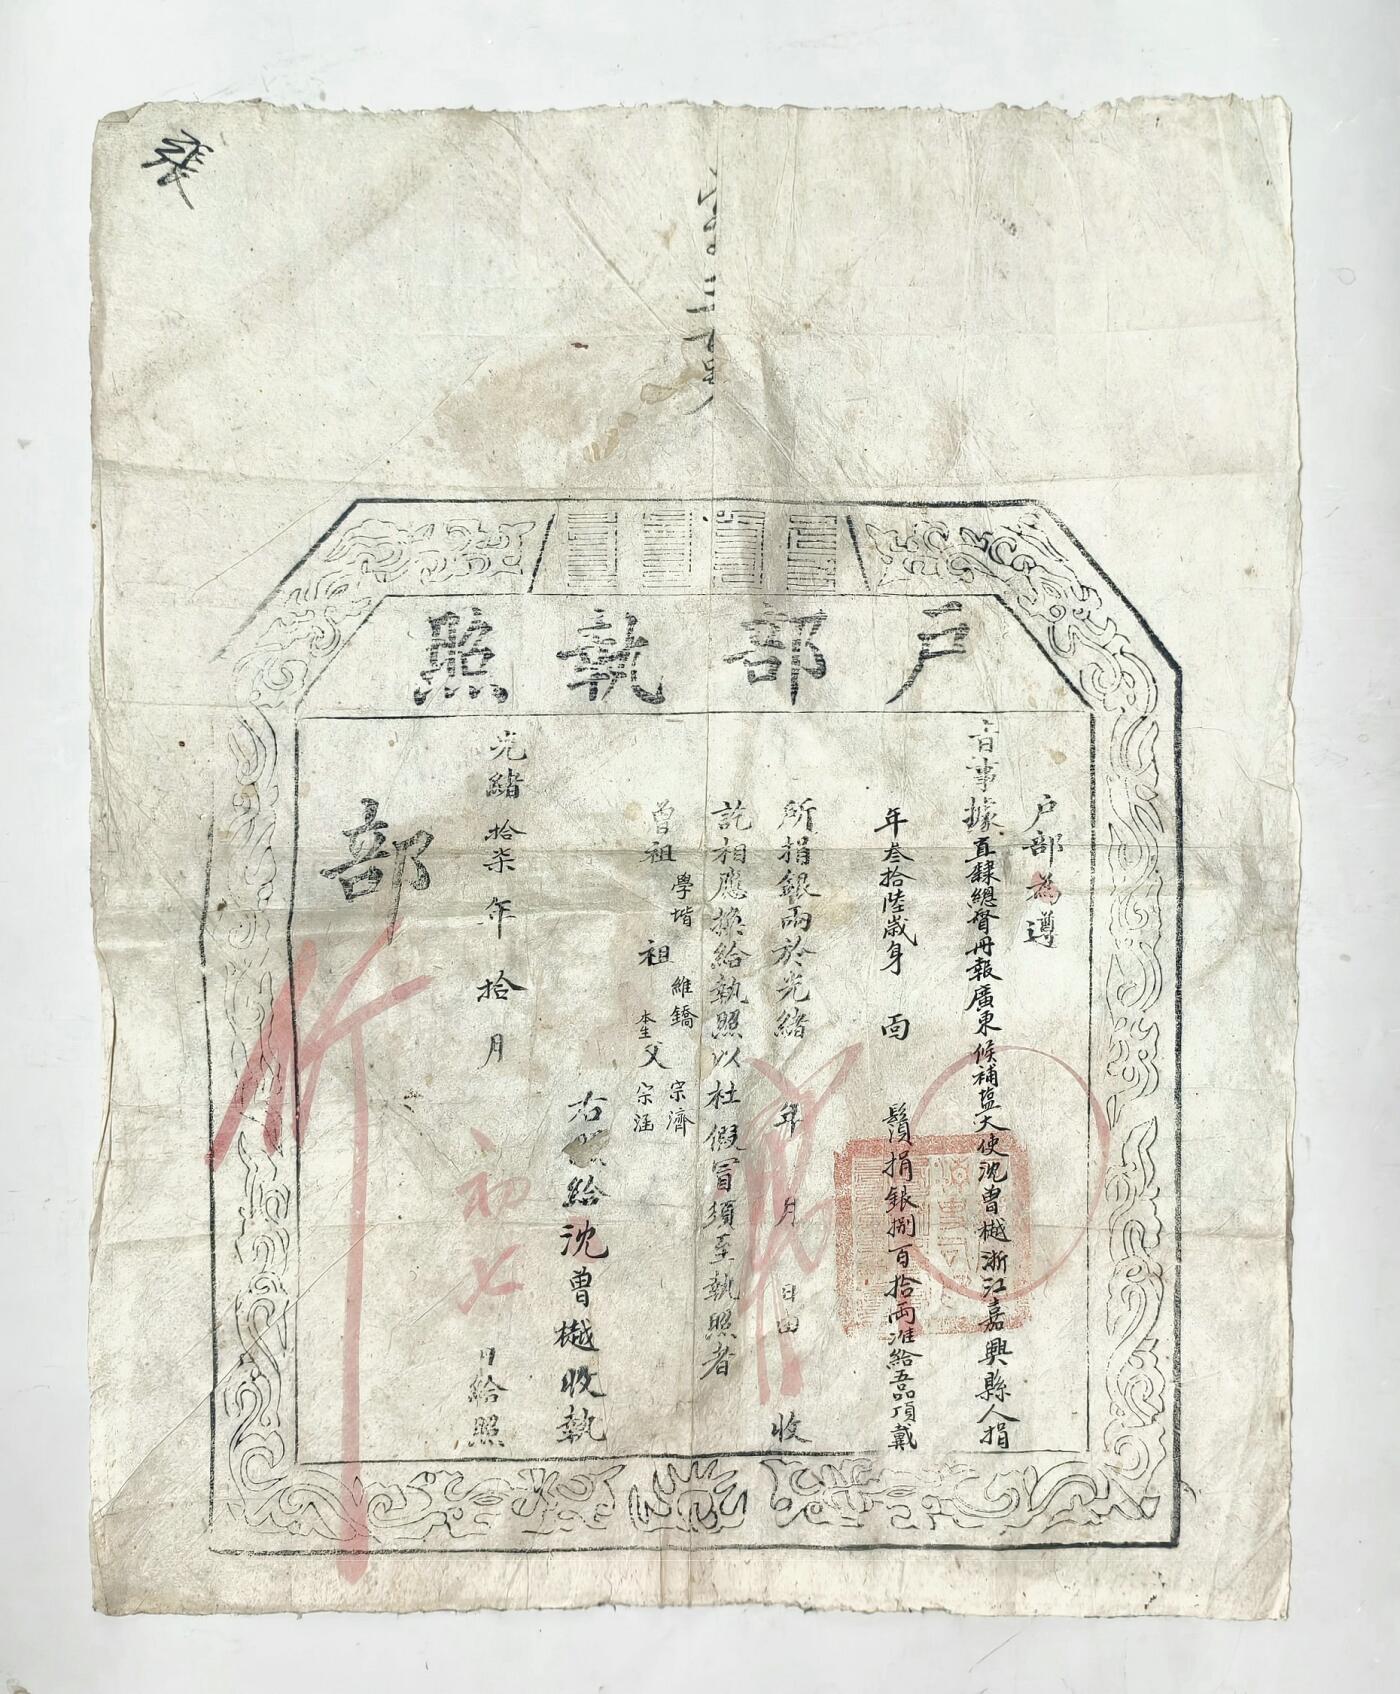 張
戶部執照
戶部為遵
旨事據直隸總督冊報廣東候補鹽大使沈曾樾浙江嘉興縣人捐
年叁拾陸歲身 面 鬚捐銀捌百拾兩准給五品頂戴
所捐銀兩於光緒 年 月 日由 收
訖相應換給執照以杜假冒須至執照者
曾祖學堦 祖維鐈 本生父宗濟宗涵
右 給沈曾樾收執
光緒拾柒年拾月初七日給照
部
行